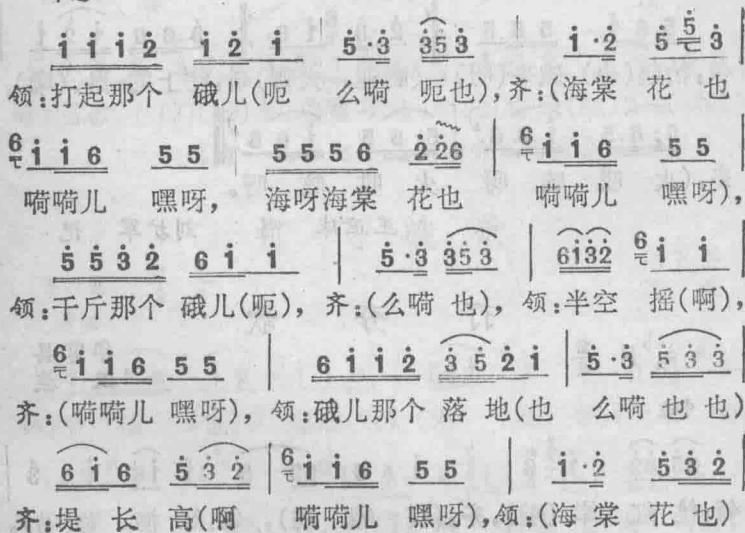 i̇ i̇ i̇ 2̇ i̇ 2̇ i̇ | 5̇·3̇ 3̇5̇3̇ | i̇·2̇ 5̇ 5̇ 3̇ |
领:打起那个 硪儿(呃 么嗬 呃也),齐:(海棠 花 也
6 i̇ i̇ 6 5 5 | 5 5 5 6 2̇ 2̇6 | 6 i̇ i̇ 6 5 5 |
嗬嗬儿 嘿呀, 海呀海棠 花也 嗬嗬儿 嘿呀),
5̇ 5̇ 3̇ 2̇ 6 i̇ i̇ | 5̇·3̇ 3̇5̇3̇ | 6i̇3̇2̇ 6 i̇ i̇ |
领:千斤那个 硪儿(呃), 齐:(么嗬 也), 领:半空 摇(啊),
6 i̇ i̇ 6 5 5 | 6 i̇ i̇ 2̇ 3̇ 5̇ 2̇ i̇ | 5̇·3̇ 5̇ 3̇ 3̇ |
齐:(嗬嗬儿 嘿呀), 领:硪儿那个 落 地(也 么嗬 也 也)
6 i̇ 6 5̇ 3̇ 2̇ | 6 i̇ i̇ 6 5 5 | i̇·2̇ 5̇ 3̇ 2̇ |
齐:堤 长 高(啊 嗬嗬儿 嘿呀),领:(海 棠 花 也)